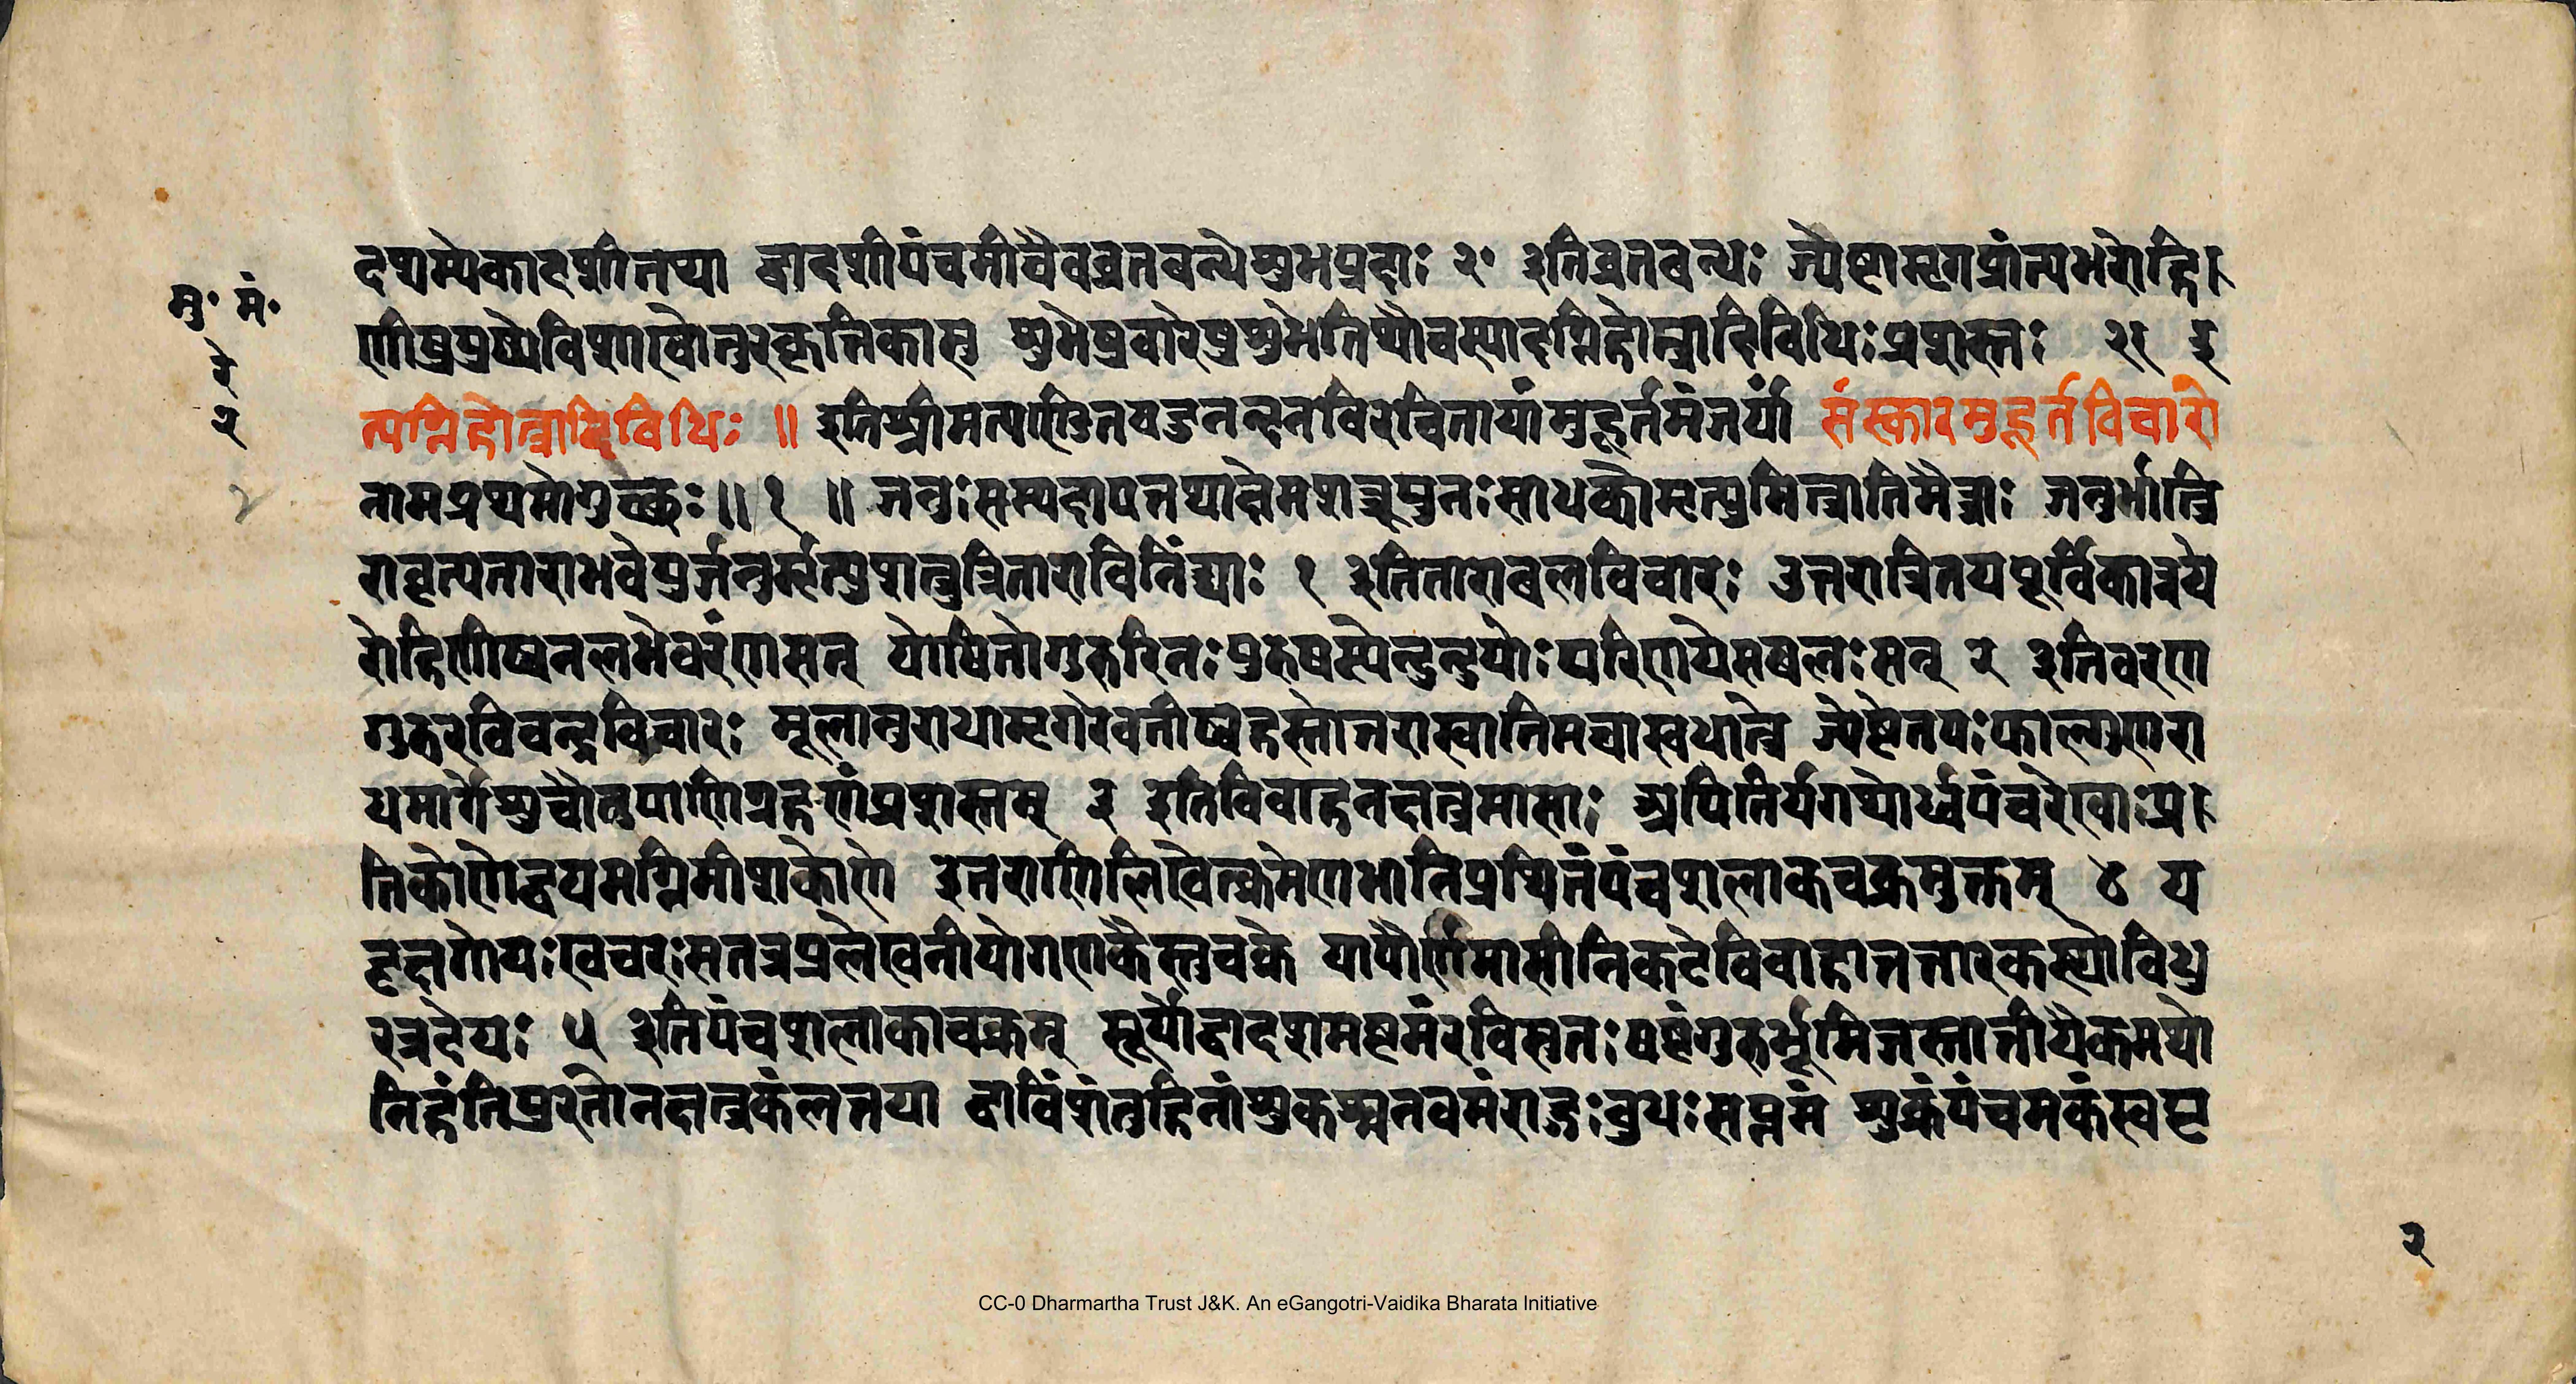 दशम्येकादशीतथा द्वादशीपंचमीचैवव्रतबन्धेशुभप्रदाः २॰ इतिव्रतबन्धः ज्येष्ठामृगप्रांत्यभरोहि
मु॰ मं॰
णीषुपुष्येविशाखोत्तरकृत्तिकासु शुभेषुवारेषुशुभेतिथौचस्यादग्निहोत्रादिविधिःप्रशस्तः २१ इ
रे
२
त्यग्निहोत्रादिविधिः ॥ इतिश्रीमत्पण्डितयदुनन्दनविरचितायांमुहूर्तमंजर्यां संस्कारमुहूर्तविचारो
नामप्रथमोगुच्छः॥ १ ॥ जनुःसम्पदापत्तथाक्षेमशत्रूपुनःसाधकोमृत्युमित्रातिमैत्राः जनुर्भात्रि
रावृत्यताराभवेयुर्जनुर्मृत्युशत्रुत्रिताराविनिंद्याः १ इतिताराबलविचारः उत्तरात्रितयपूर्विकात्रये
रोहिणीष्वनलभेवरंणसत् योषितोगुरुरिनःपुरुषस्येन्दुन्दुयोःपरिणयेसबलःसन् २ इतिवरण
गुरुरविचन्द्रविचारः मूलानुराधामृगरेवतीषुहस्तोत्तरास्वातिमघास्वधात्रे ज्येष्ठेतपःफाल्गुणरा
धमार्गेशुचौतुपाणिग्रहणंप्रशस्तम् ३ इतिविवाहनक्षत्रमासाः अपितिर्यगथोर्ध्वपंचरेखाःप्र
तिकोणेद्वयमग्निमीशकोणे इतराणिलिखेत्क्रमेणभानिप्रथितंपंचशलाकचक्रमुक्तम् ४ य
दृक्षगोयःखचरःसतत्रप्रलेखनीयोगणकैस्तुचक्रे यापौर्णमासीनिकटेविवाहात्तत्तारकस्थोविधु
रत्रदेयः ५ इतिपंचशलाकाचक्रम् सूर्योद्वादशमष्टमंरविसुतःषष्ठंगुरुर्भूमिजस्तार्त्तीयैकमथो
निहंतिपुरतोनक्षत्रकंलत्तया द्वाविंशंतुहिनांशुकश्चनवमंराहुःबुधःसप्तमं शुक्रंपंचमकंस्वपृ
२
CC-0 Dharmartha Trust J&K. An eGangotri-Vaidika Bharata Initiative